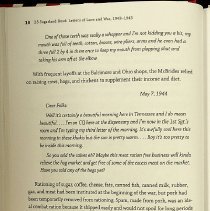 38 15 Sugarloaf Book Letters of Love and War, 1943-1945
One of those teeth was really a whopper and I'm not kidding you a bit, my
mouth was full of teeth, cotton, boxes, wire pliers, arms and he even had a
three foot 2 by 4 in there once to keep my mouth from flopping shut and
taking his arm off at the elbow.
With frequent layoffs at the Baltimore and Ohio shops, the McBrides relied
on raising cows, hogs, and chickens to supplement their income and diet.
May 7, 1944
Dear Folks:
Well it's certainly a beautiful morning here in Tennessee and I do mean
beautiful. I'm on CQ here at the dispensary and I'm now in the 1st Sgt's
room and I'm typing my third letter of the morning. It's awfully cool here this
morning in these khakis but the sun is pretty warm. Boy it's too pretty to
be inside this morning.
So you sold the calves eh? Maybe this meat ration free business will kinda
relieve the hog market and get five of some of the excess meat on the market.
Have you sold any of the hogs yet?
Rationing of sugar, coffee, cheese, fats, canned fish, canned milk, rubber,
gas, and meat had been instituted at the beginning of the war, but pork had
been temporarily removed from rationing. Spam, made from pork, was an ideal
combat ration because it shipped easily and would not spoil for long periods